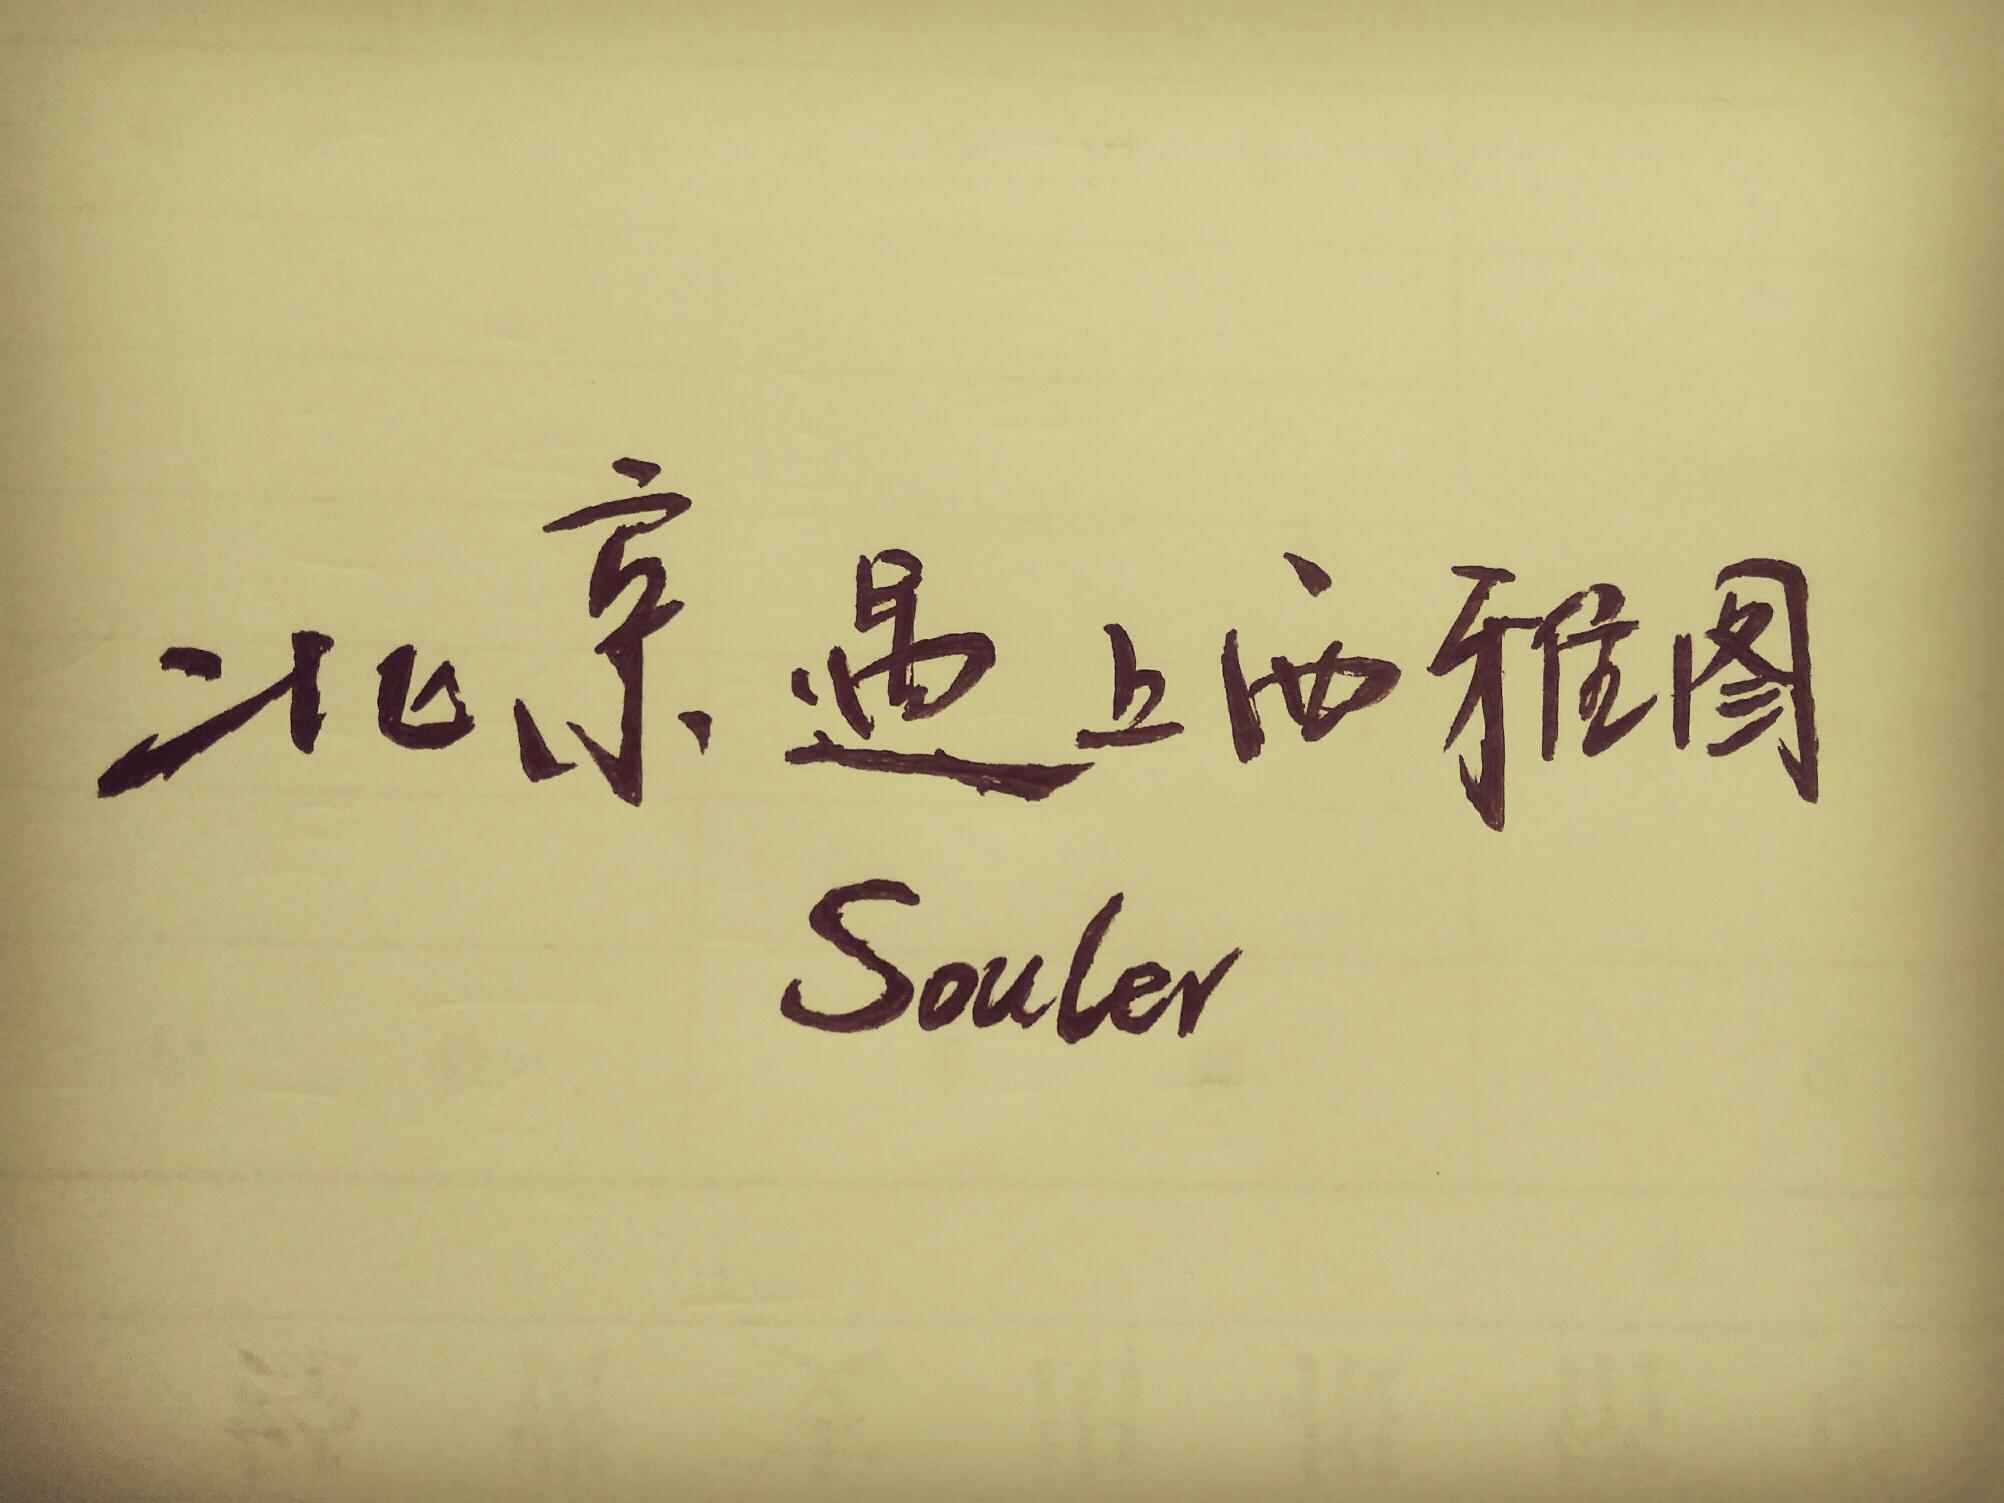 北京遇上西雅图
Souler